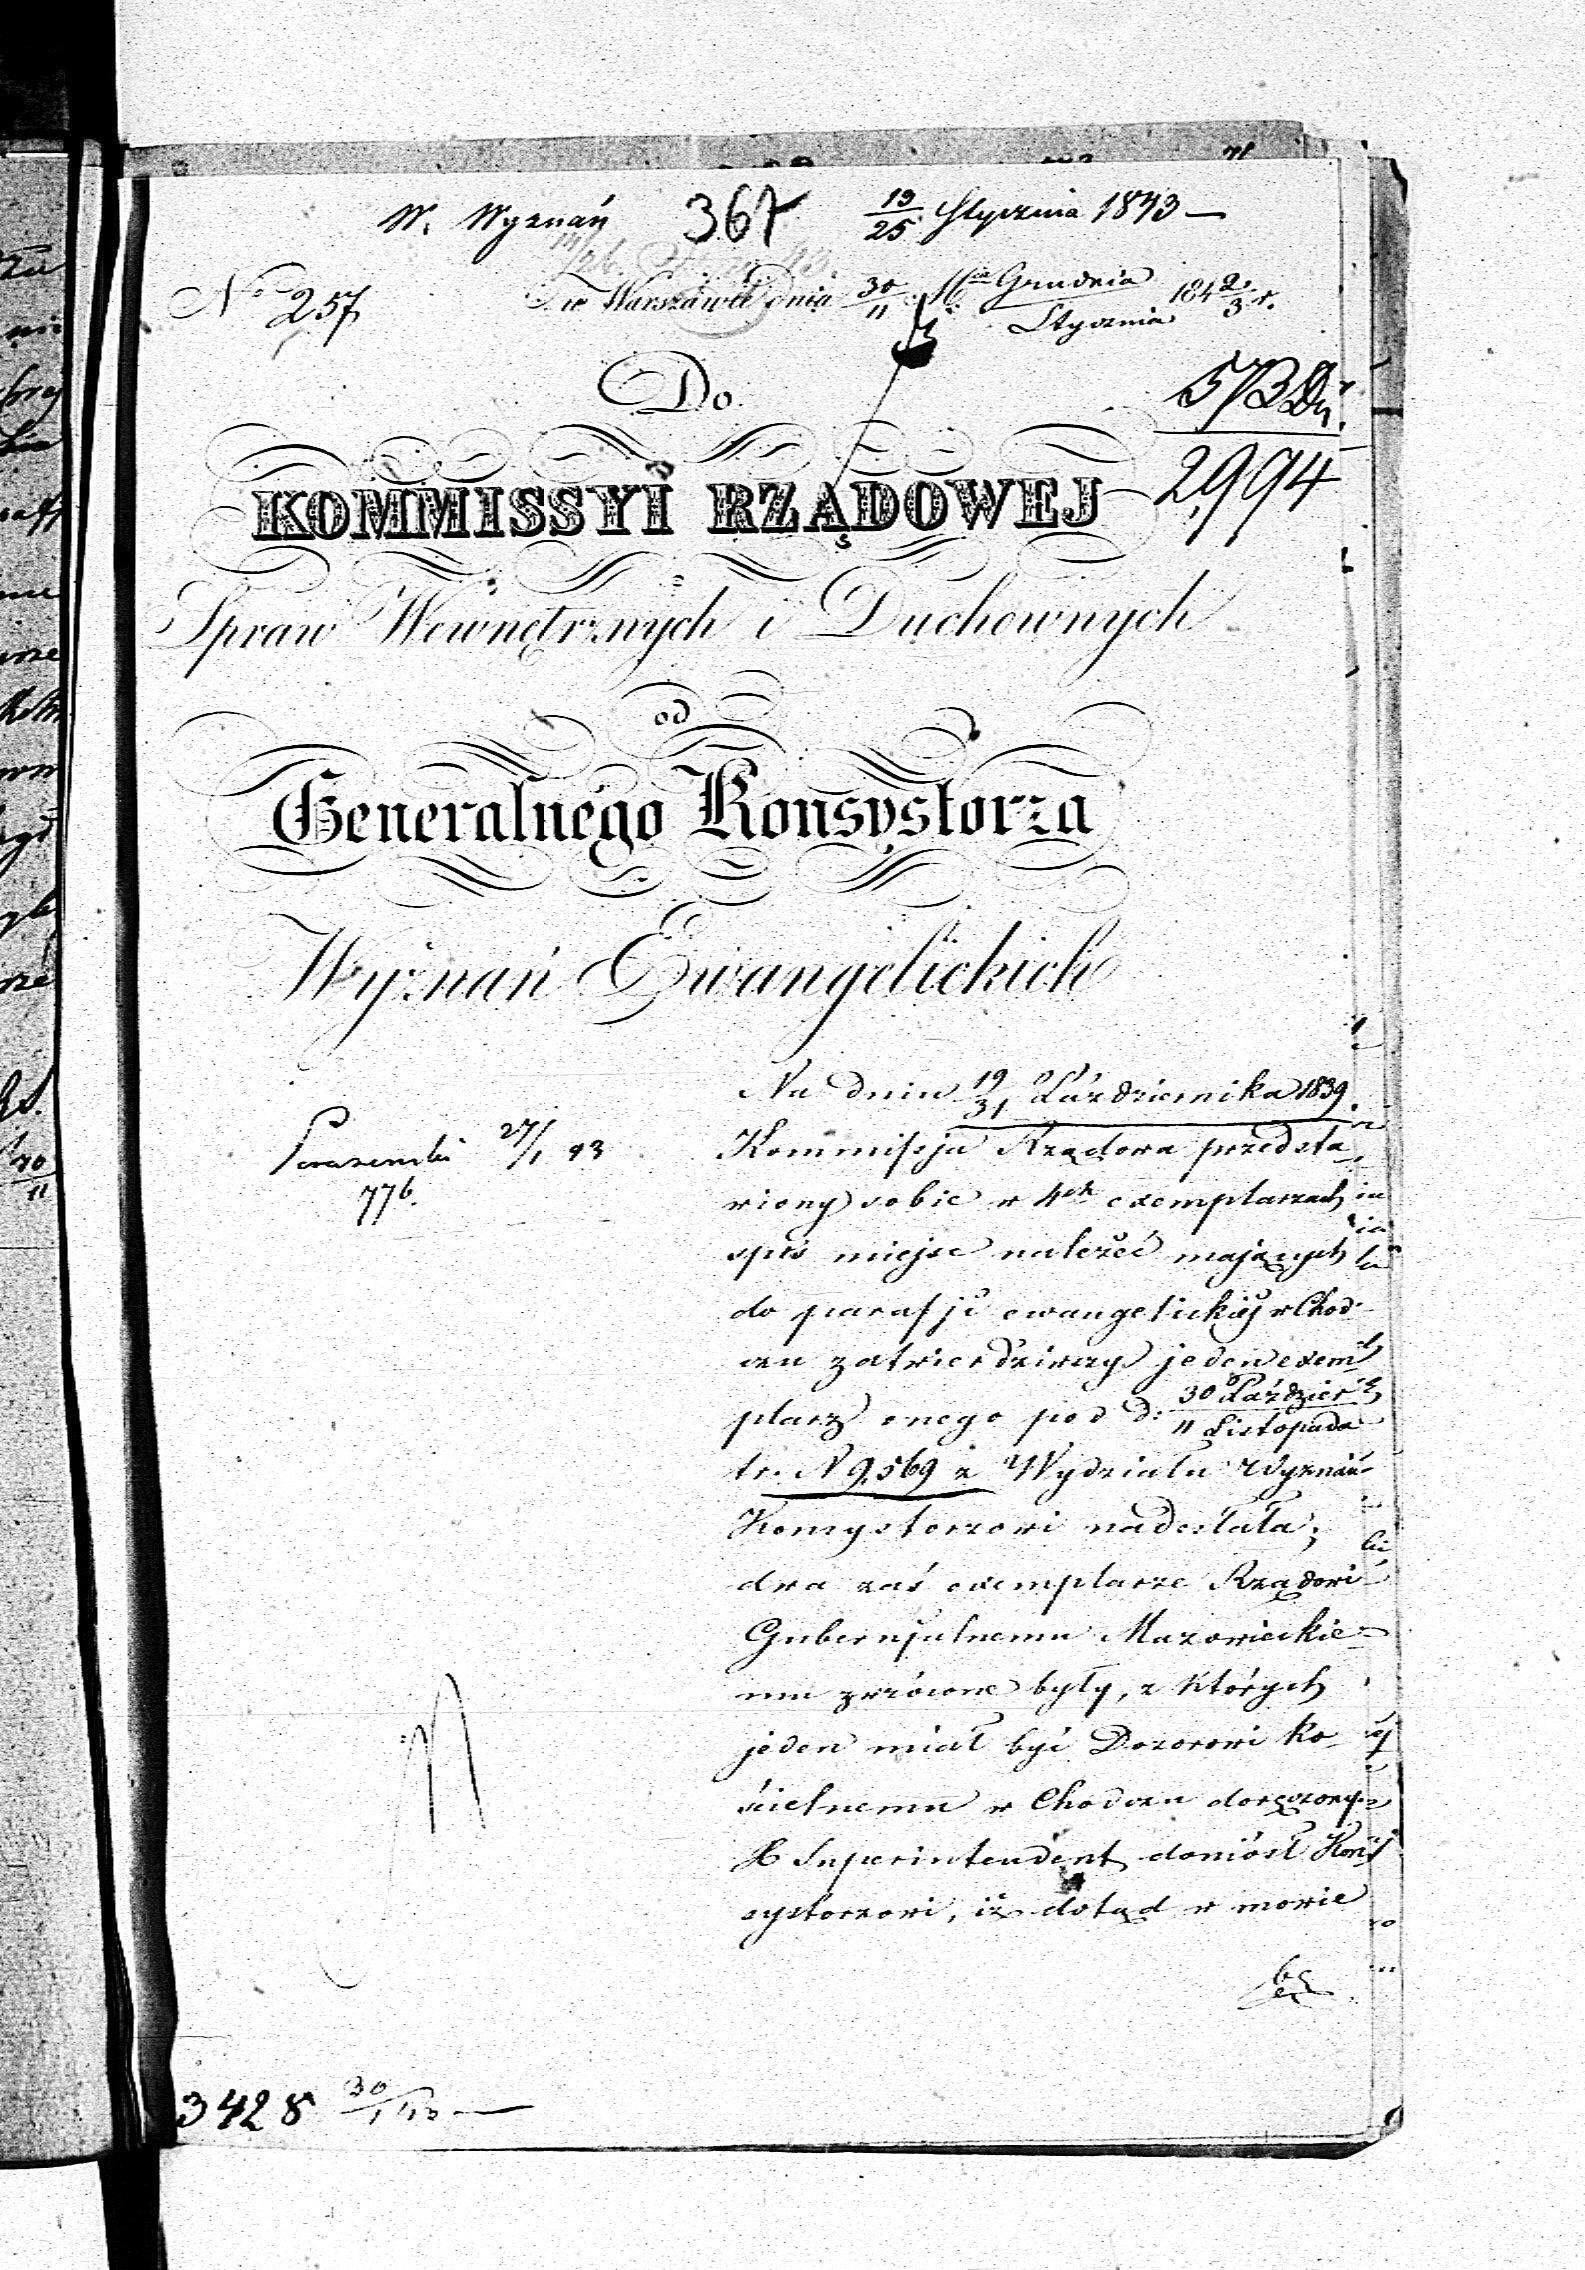 W. Wyznań 367 19/25 Stycznia 1843 —
No 257 w Warszawie dnia 30/11 Grudnia/Stycznia 1842/3 r.
Do 573
2994
KOMMISSYI RZĄDOWEJ
Spraw Wewnętrznych i Duchownych
od
Generalnego Konsystorza
Wyznań Ewangelickich
Na dniu 19/31 Października 1839
27/1 43 Kommissja Rządowa przedsta-
776. wiony sobie w 4ch exemplarzach
spis miejsc należéć mających
do parafji ewangelickiéj w Chod-
czu zatwierdziwszy jeden exem-
plarz onego pod d: 30 Paździer/11 Listopada
t.r. N 9,569 z Wydziału Wyznań
Konsystorzowi nadesłała;
dwa zaś exemplarze Rządowi
Gubernjalnemu Mazowieckie-
mu zwrócone były, z których
jeden miał być Dozorowi ko-
ścielnemu w Chodczu doręczony
X Superintendent doniósł Kon-
systorzowi, iż dotąd w mowie
3428 30/1 43 —